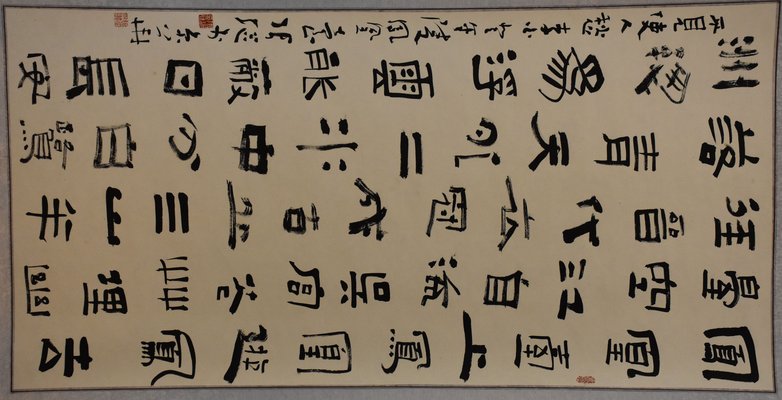 鳳凰臺上鳳凰遊鳳去
臺空江自流吳宮花草埋幽
徑晉代衣冠成古丘三山半
落青天外二水中分白鷺
洲總為浮雲能蔽日長安
不見使人愁